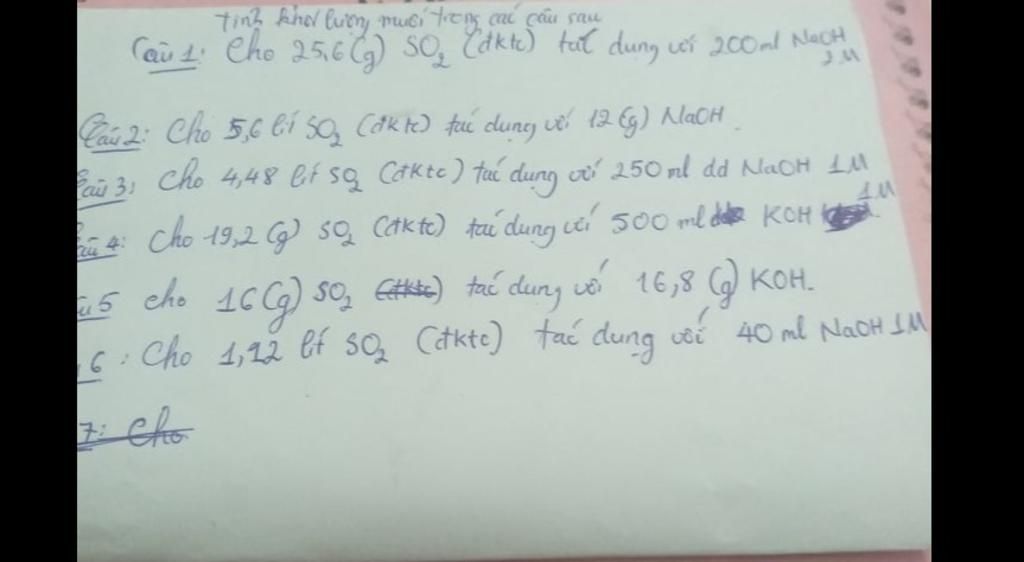 Tính khối lượng muối trong các câu sau
Câu 1: Cho 25,6 (g) SO2 (đktc) tác dụng với 200ml NaOH
2M
Câu 2: Cho 5,6 lít SO2 (đktc) tác dụng với 12 (g) NaOH.
Câu 3: Cho 4,48 lít SO2 (đktc) tác dụng với 250 ml dd NaOH 1M
1M
Câu 4: Cho 19,2 (g) SO2 (đktc) tác dụng với 500 ml KOH
u 5 cho 16 (g) SO2 (đktc) tác dụng với 16,8 (g) KOH.
6: Cho 1,12 lít SO2 (đktc) tác dụng với 40 ml NaOH 1M
7: Cho